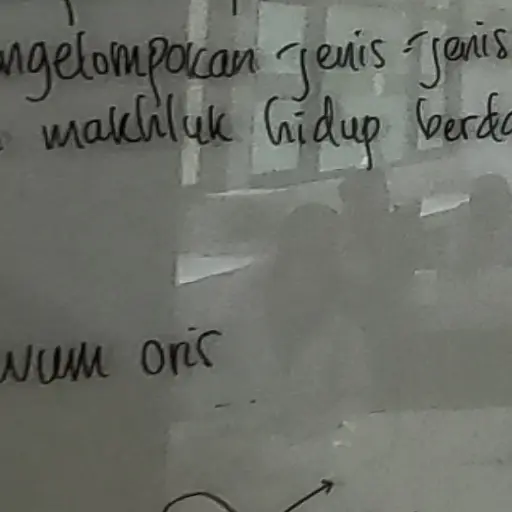 ngelompokan jenis-jenis
makhluk hidup berda
num oris